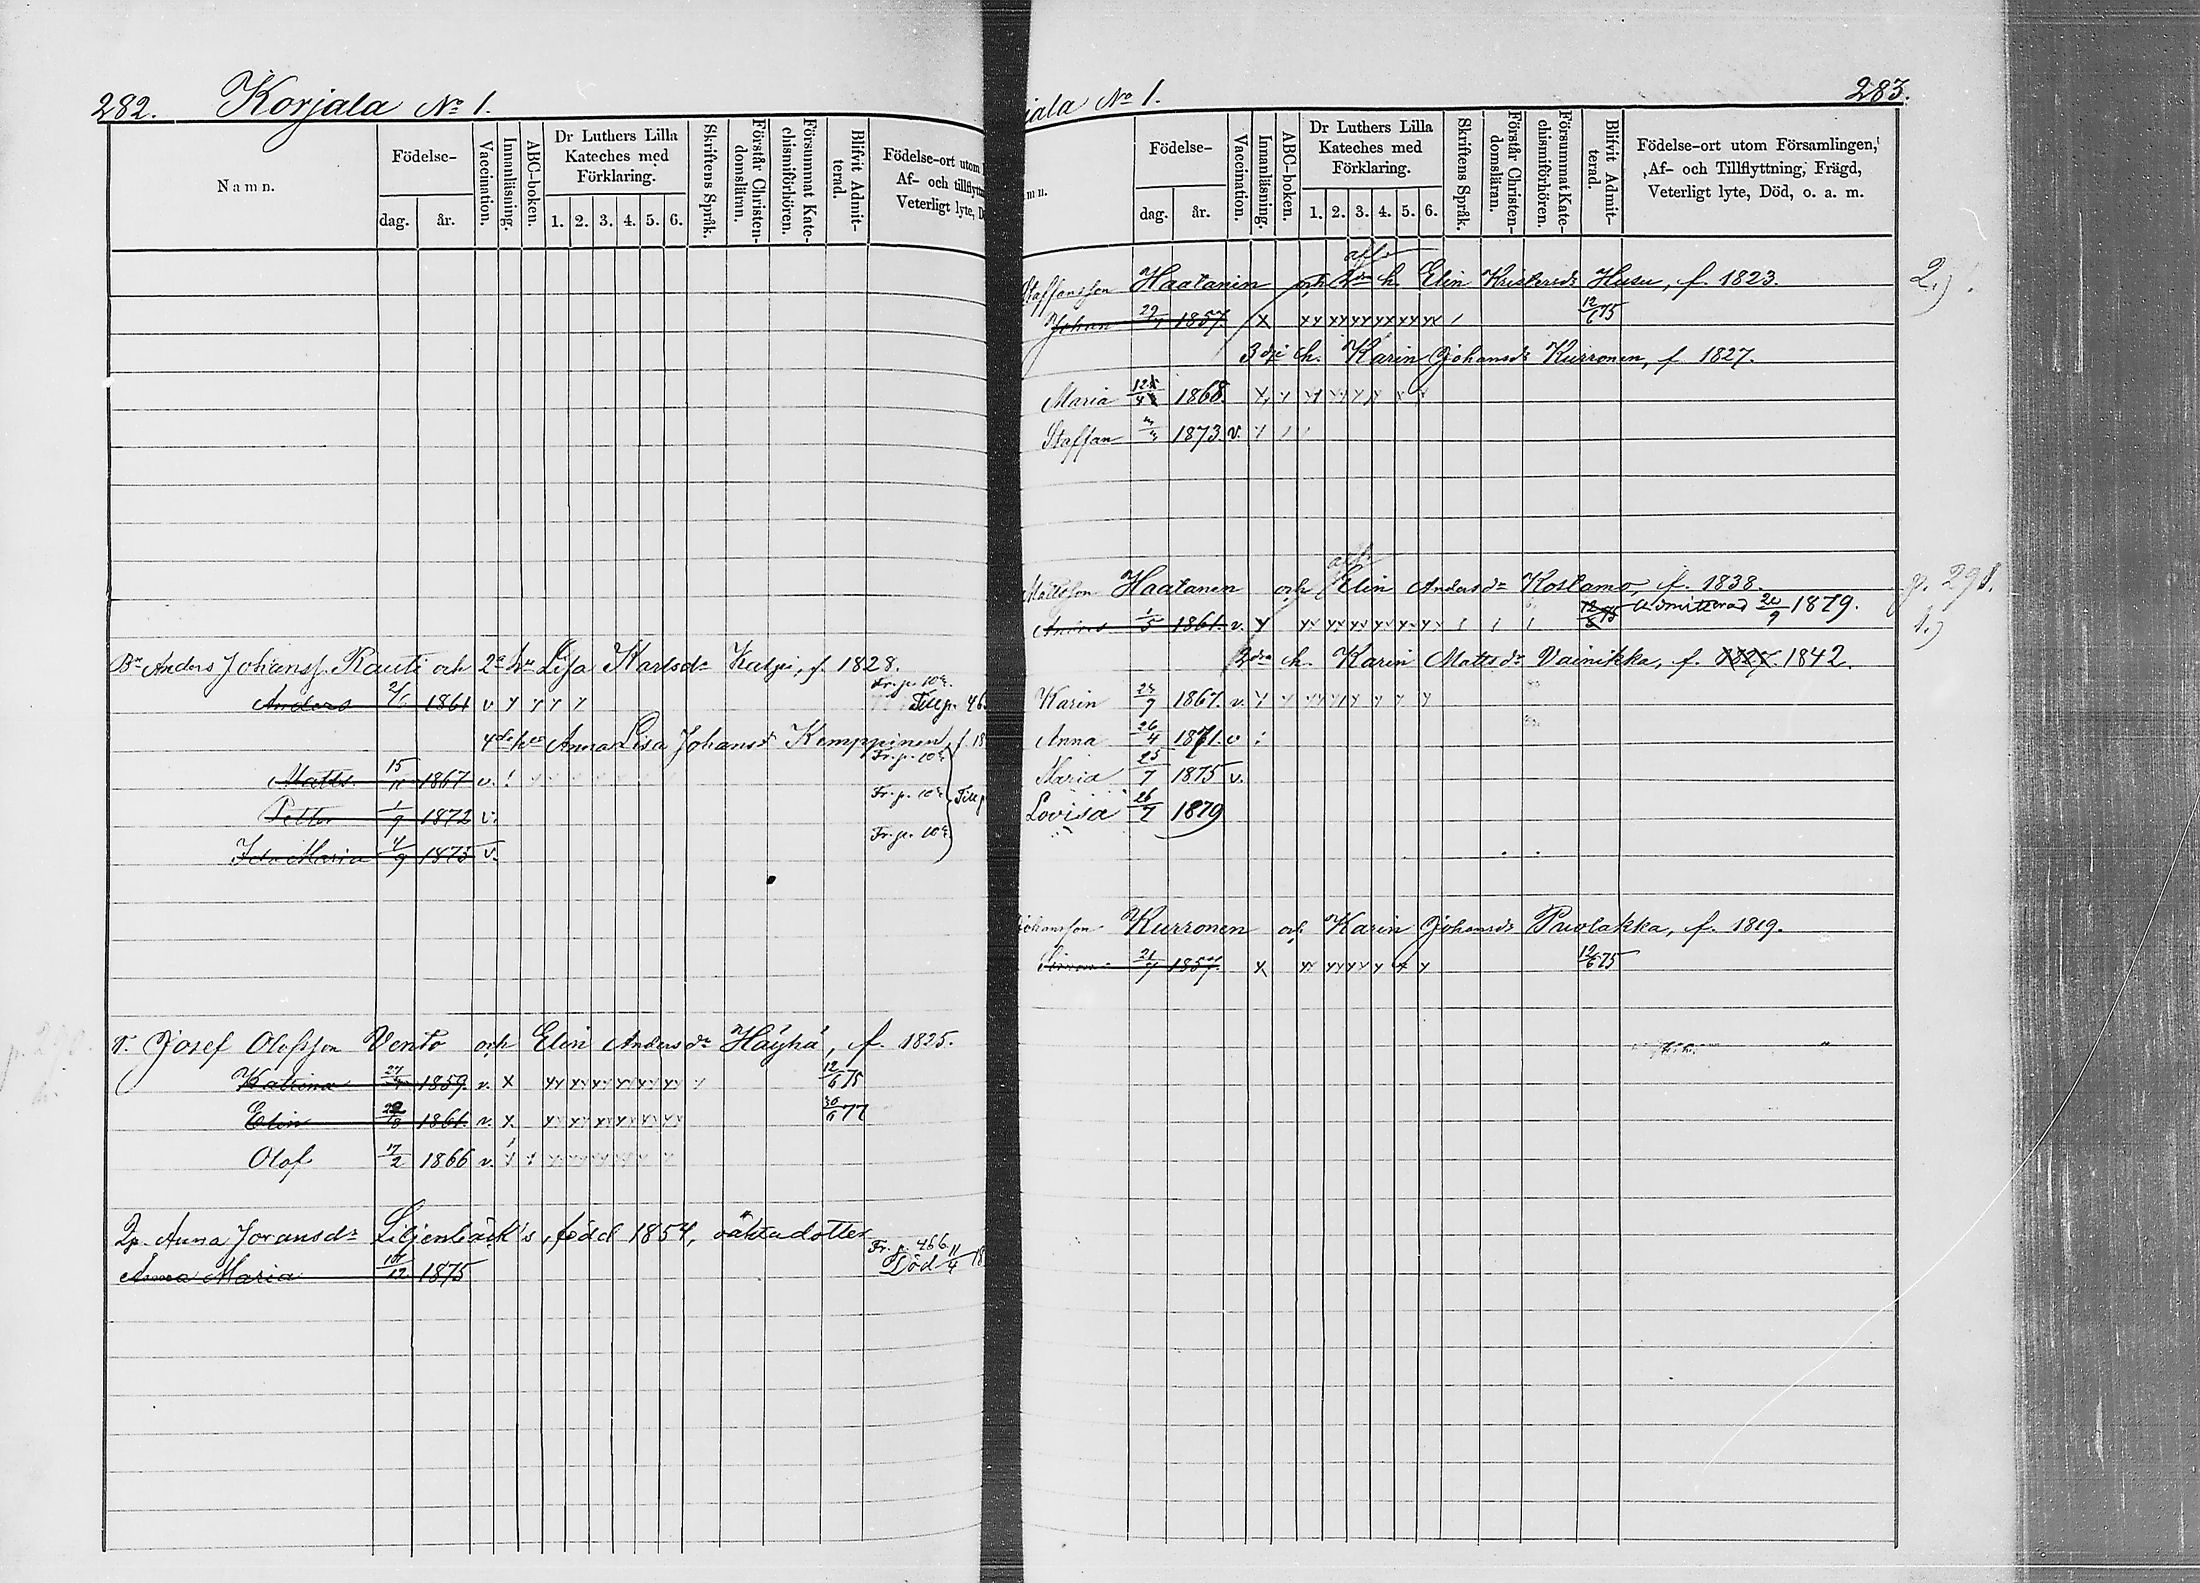 282. Korjala No 1.
Namn. Födelse- dag. år. Vaccination. Innanläsning. ABC-boken. Dr Luthers Lilla Kateches med Förklaring. 1. 2. 3. 4. 5. 6. Skriftens Språk. Förstår Christendomsläran. Försummat Katechismiförhören. Blifvit Admitterad. Födelse-ort utom Af- och tillflytt Veterligt lyte, D
Anders Johanss. Rauti och 2a hu Lisa Karlsdr f. 1828.
Fr. p. 102.
Anders 2/6 1861 v Y Y Y Y Till p. 46
4de hu Anna Lisa Johansdr Kemppinen, f. 18
Fr. p. 102
Matts 15/11 1867 v.
Fr. p. 102 Till p
Petter 1/9 1872 v.
Fr. p. 102.
Ida Maria 4/9 1875 v.
V. Josef Olofsson Vento och Elin Andersdr Häyhä, f. 1825.
Katrina 27/4 1859. v. x 12/6 75
Elin 1861. v. x 30/6 77
Olof 17/2 1866 v.
Anna Joransdr Liljenbäck's, född 1854, oäkta dotter
Fr. p. 466
Anna Maria 1875 Död 11/4 18
jala No 1. 283.
mn. Födelse- dag. år. Vaccination. Innanläsning. ABC-boken. Dr Luthers Lilla Kateches med Förklaring. 1. 2. 3. 4. 5. 6. Skriftens Språk. Förstår Christendomsläran. Försummat Katechismiförhören. Blifvit Admitterad. Födelse-ort utom Församlingen, Af- och Tillflyttning, Frägd, Veterligt lyte, Död, o. a. m.
afl.
Staffansson Haatanen och h. Elin Kristersdr Husu, f. 1823. 2.)
Johan 1857. x 12/6 75
3dje h. Karin Johansdr Kurronen, f. 1827.
Maria 1868.
Staffan 1873 v.
afl.
Mattsson Haatanen och Elin Andersdr Koslamo, f. 1838. p. 291.
Anders 1/5 1861. v. Y 12/6 75 Admitterad 20/9 1879. 1.)
2dra h. Karin Mattsdr Vainikka, f. 1827. 1842.
Karin 1867. v.
Anna 26/4 1871. v
Maria 25/7 1875 v.
Lovisa 26/7 1879
Johansson Kurronen och Karin Johansdr Puolakka, f. 1819.
Simon 21/4 1857. x 12/6 75